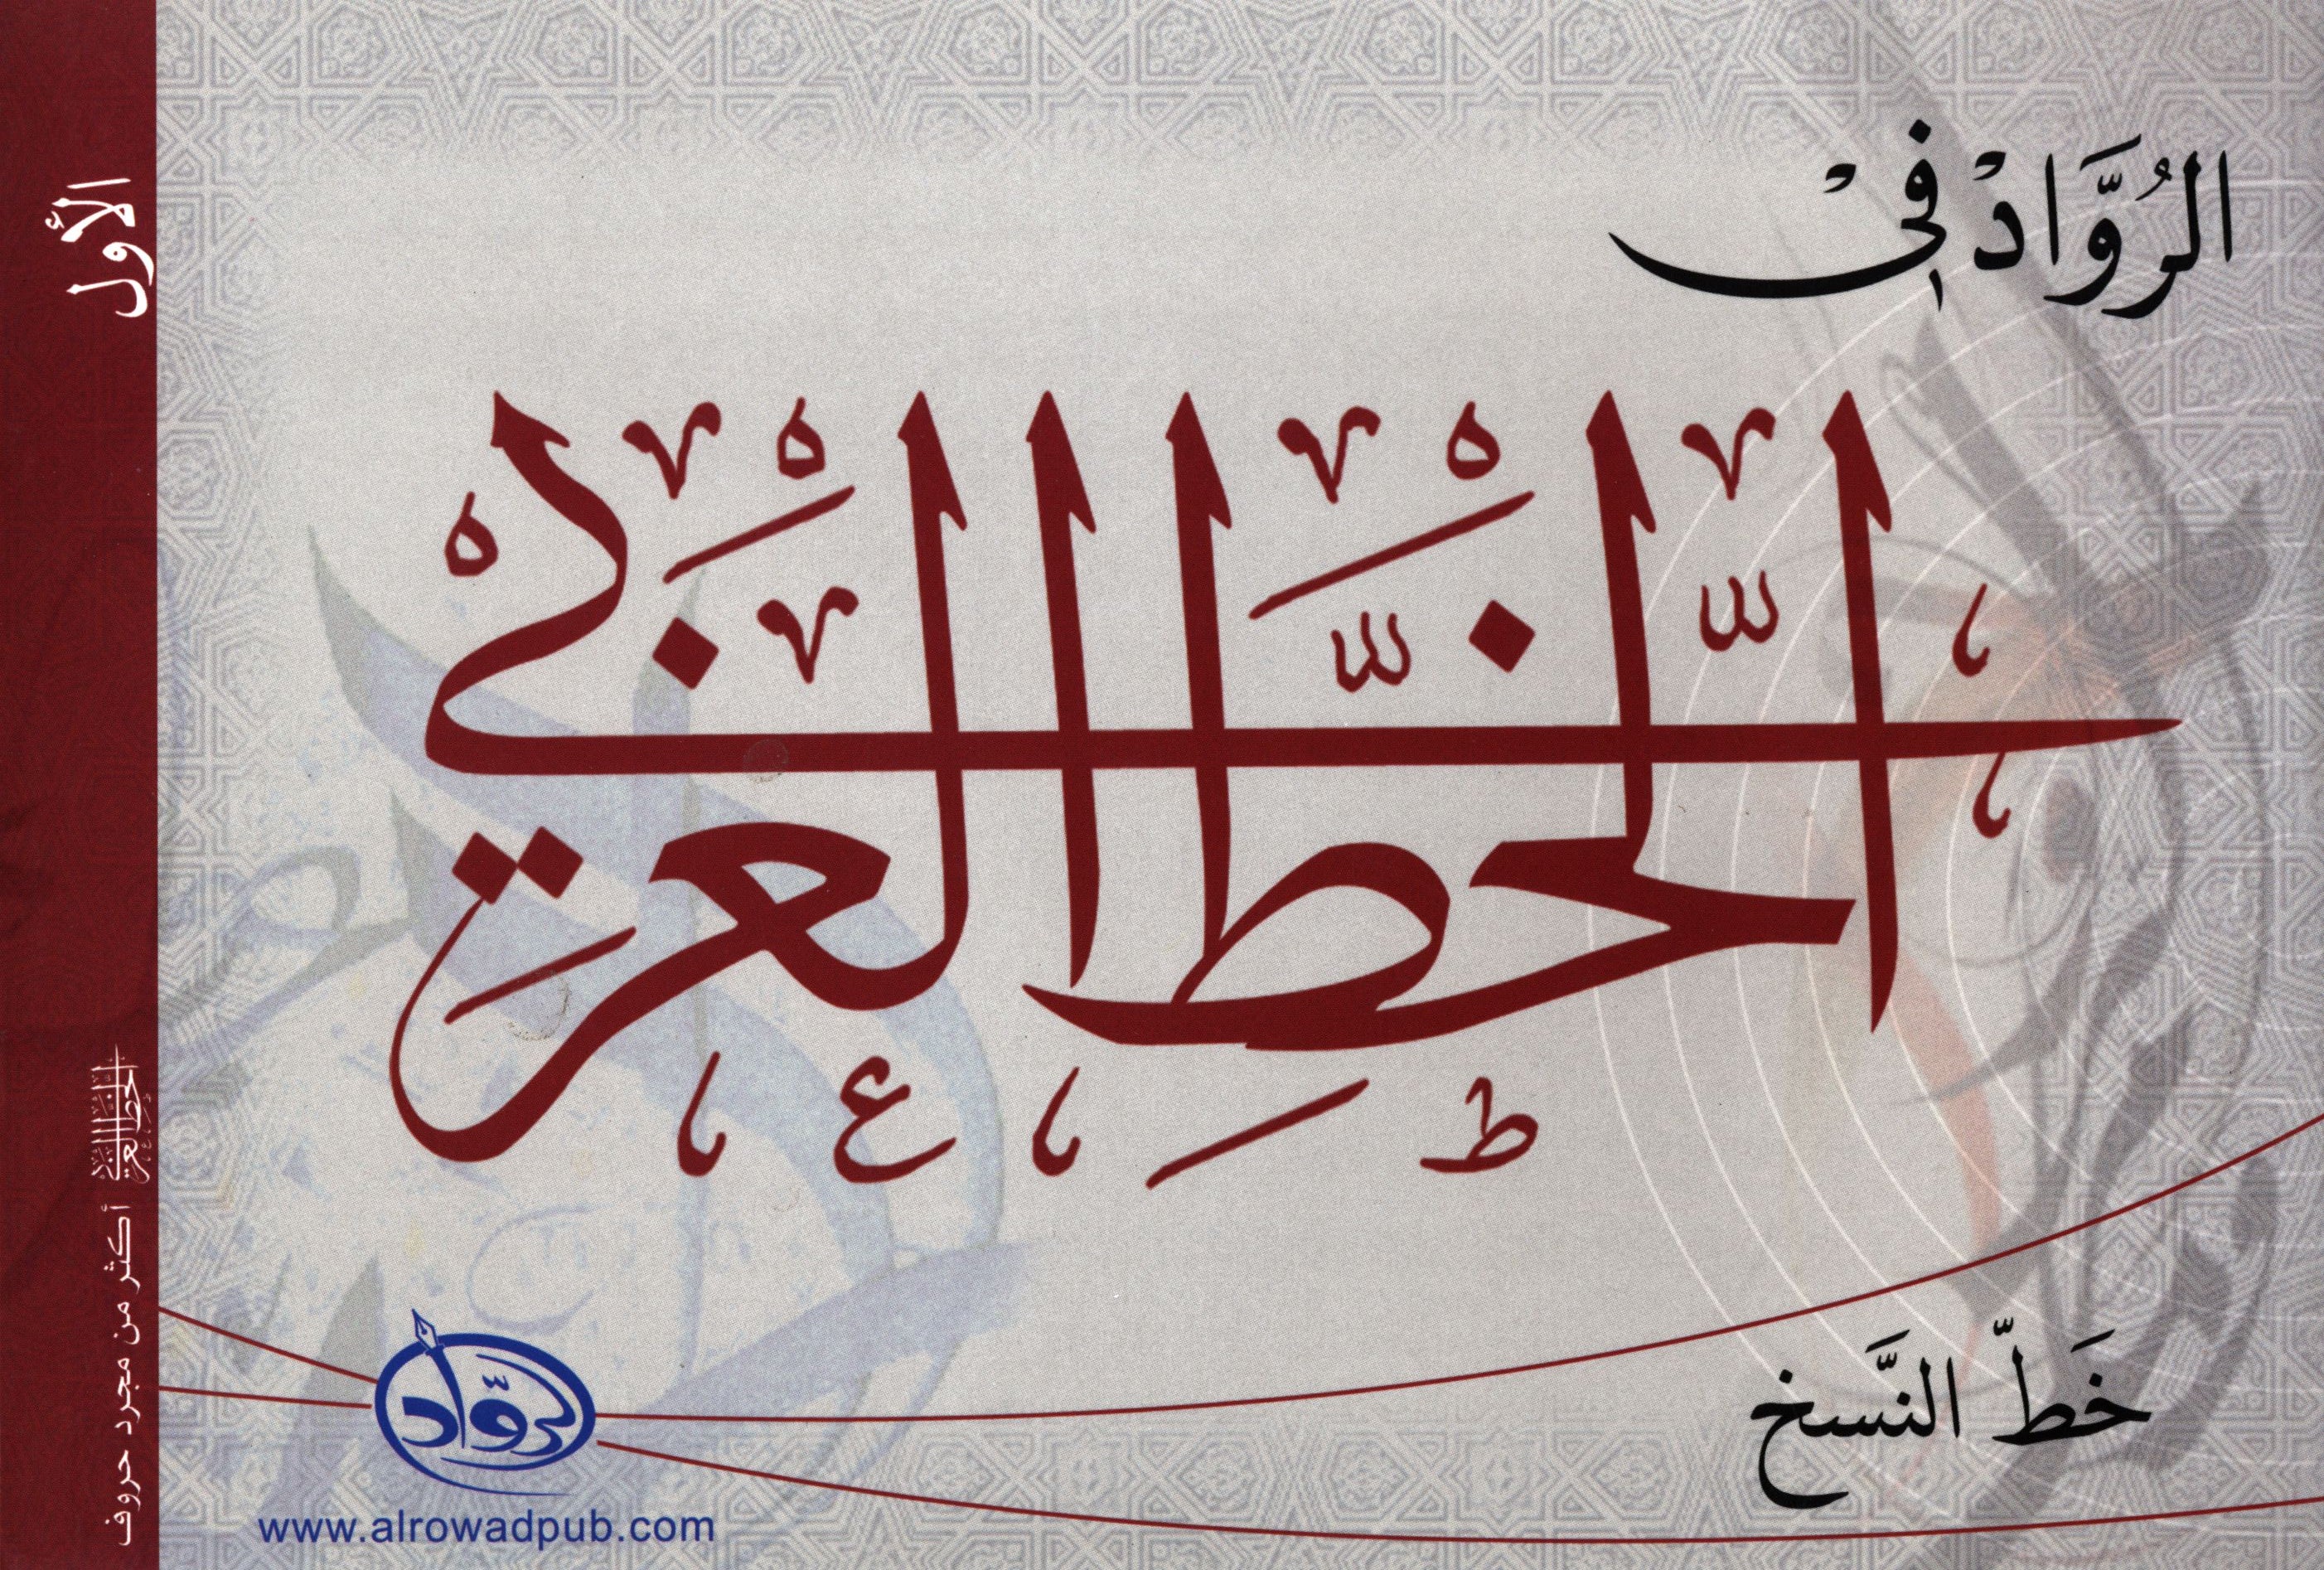 الرُّوَّاد في
الخطّ العربي
خَطّ النَّسخ
الرُّوّاد
www.alrowadpub.com
الأول
الخط العربي أكثر من مجرد حروف